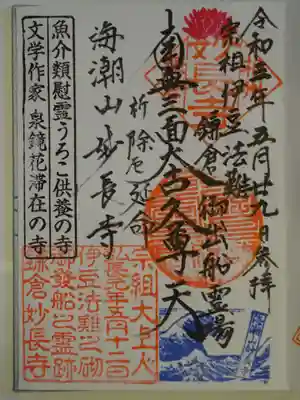 令和三年五月廿九日奉拝
宗祖伊豆法難
鎌倉御出船霊場
南無三面大古久尊天
祈 除厄延命
海潮山妙長寺
魚介類慰霊うろこ供養の寺
文学作家 泉鏡花滞在の寺
宗祖大上人
弘長元年五月十二日
伊豆法難之砌
御発船之霊跡
鎌倉妙長寺
妙長寺